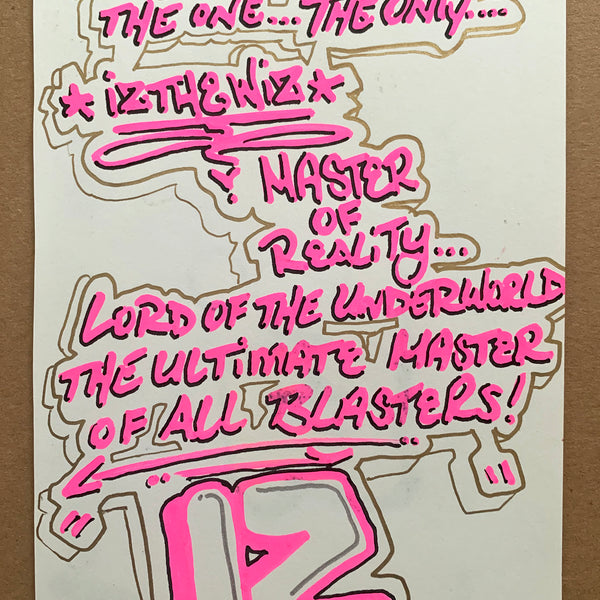 THE ONE... THE ONLY....
*IZTHEWIZ*
MASTER
OF
REALITY...
LORD OF THE UNDERWORLD
THE ULTIMATE MASTER
OF ALL BLASTERS!
IZ